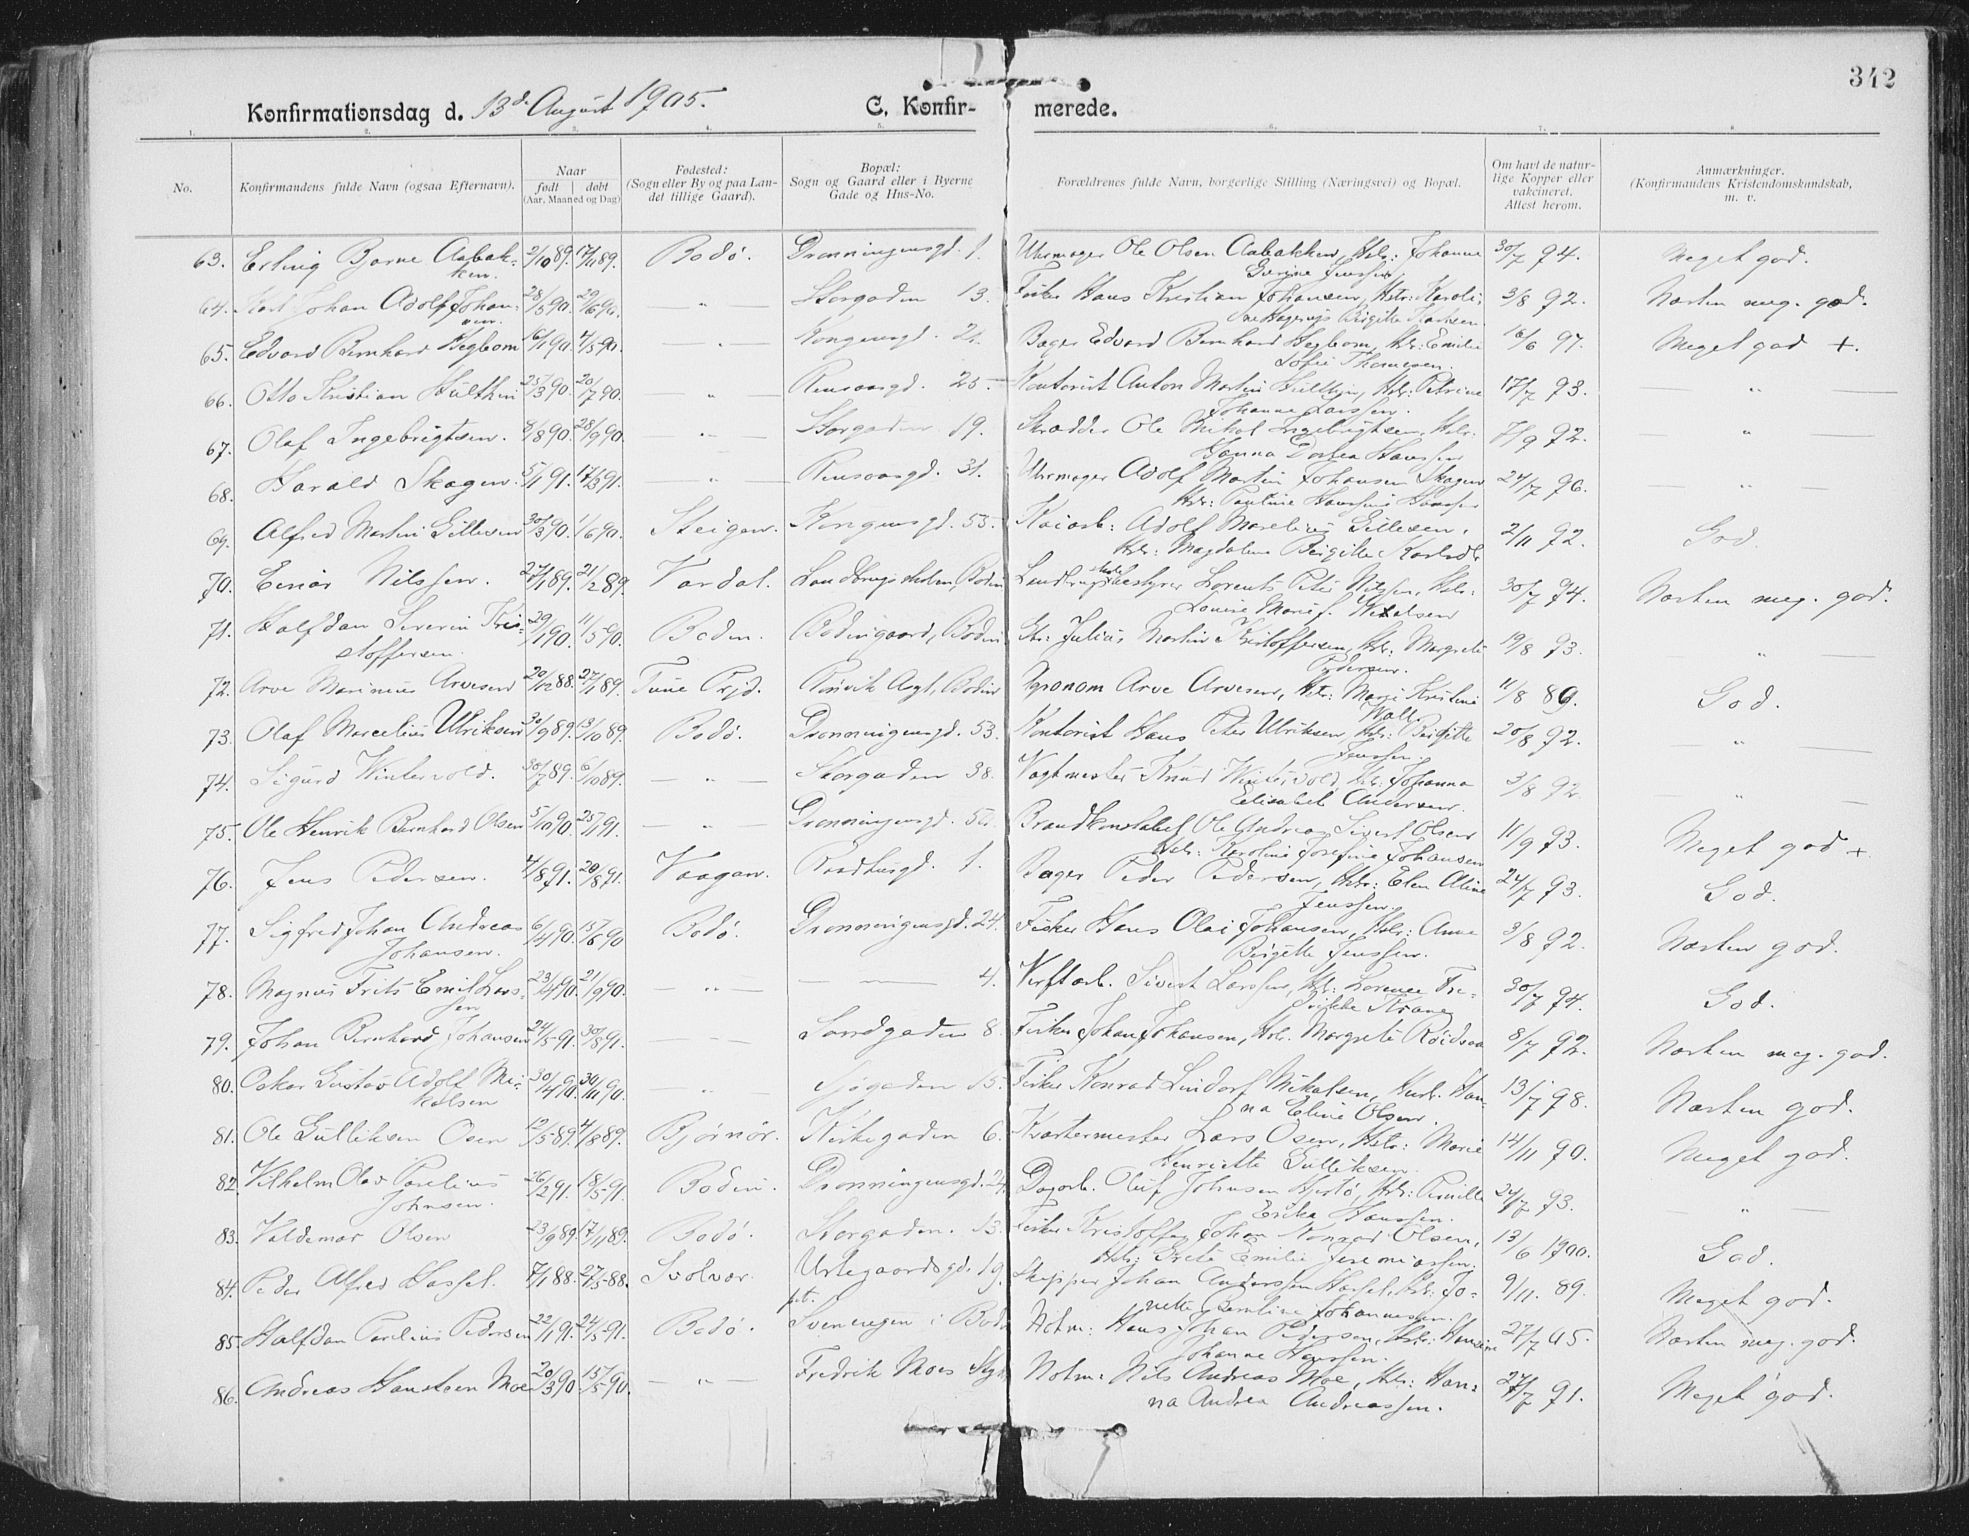 342
Konfirmationsdag d. 13de August 1905. C. Konfirmerede.
1. 2. 3. 4. 5. 6. 7. 8.
No. | Konfirmandens fulde Navn (ogsaa Efternavn). | Naar født | døbt (Aar, Maaned og Dag) | Fødested: (Sogn eller By og paa Landet tillige Gaard). | Bopæl: Sogn og Gaard eller i Byerne Gade og Hus-No. | Forældrenes fulde Navn, borgerlige Stilling (Næringsvei) og Bopæl. | Om havt de naturlige Kopper eller vakcineret. Attest herom. | Anmærkninger. (Konfirmandens Kristendomskundskab, m. v.
63. Erling Bjarne Aabakken. 2/10 89. 17/11 89. Bodø. Dronningensgd. 1. Uhrmager Ole Olsen Aabakken, Hstr: Johanne Jenssen 30/7 94. Meget god.
64. Karl Johan Adolf Johansen. 28/5 90. 29/6 90. — " — Storgaden 13. Fisker Hans Kristian Johansen, Hstr: Karoline Birgitte 3/8 92. Næsten meg. god.
65. Edvard Bernhard Hegbom 16/1 90. 4/5 90. — " — Kongensgd. Bager Edvard Bernhard Hegbom, Hstr: Emilie Sofie Thomesen. 16/6 97. Meget god +.
66. Otto Kristian Hulthin 25/3 90. 20/7 90. — " — Rensaasgd. 25. Kontorist Anton Martin Hulthin, Hstr: Petrine Johanne Larssen. 17/7 93. — " —
67. Olaf Ingebrigtsen. 8/8 90. 28/9 90. — " — Storgaden 19. Skrædder Ole Nikol Ingebrigtsen, Hstr: Hanna Dorthea Hanssen 7/9 92. — " —
68. Harald Skagen. 5/1 91. 17/3 91. — " — Rensaasgd. 31. Uhrmager Adolf Martin Johansen Skagen Hstr: Pauline 24/7 96. — " —
69. Alfred Martin Gillesen 30/3 90. 1/6 90. Steigen. Kongensgd. 53. Kaiarb: Adolf Marelius Gillesen, Hstr: Magdalene Birgitte 2/11 92. God.
70. Einar Nilssen. 27/1 89. 21/2 89. Vardal. Landbrugsskolen, Bodin Landbrugsskolebestyrer Lorents Peter Nilssen, Hstr: Louise Marie 30/7 94. Næsten meg. god.
71. Halfdan Severin Kristoffersen. 29/1 90. 11/5 90. Bodin. Bodingaard, Bodin Gbr: Julius Martin Kristoffersen, Hstr: Margrete Pedersen. 19/8 93. — " —
72. Arve Marinius Arvesen 20/12 88. 27/1 89. Tune Prjd. Rønvik Asyl, Bodin Agronom Arve Arvesen, Hstr: Marie Kristine 11/8 89. God.
73. Olaf Marcelius Ulriksen 30/9 89. 13/10 89. Bodø. Dronningensgd. 53. Kontorist Hans Peter Ulriksen, Hstr: Birgitte Jenssen. 20/8 92. — " —
74. Sigurd Wintervold. 30/7 89. 6/10 89. — " — Storgaden 38. Vagtmester Knud Wintervold, Hstr: Johanna Elisabet Andersen. 3/8 92 — " —
75. Ole Henrik Bernhard Olsen 5/10 90. 25/1 91. — " — Dronningensgd. Brandkonstabel Ole Andreas Sivert Olsen Hstr: Karoline Josefine Johansen 11/9 93. Meget god +
76. Jens Pedersen. 4/8 91. 20/8 91. Vaagan. Raadhusgd. 1. Bager Peder Pedersen, Hstr: Elen Aline Jenssen. 24/7 93. God.
77. Sigfred Johan Andreas Johansen. 6/4 90. 15/6 90 Bodø. Dronningensgd. 24. Fisker Hans Olai Johansen, Hstr: Anne Birgitte Jenssen. 3/8 92. Næsten god.
78. Magnus Frits Emil Larssen 23/4 90. 21/9 90. — " — — — 4. Verftarb. Sivert Larssen, Hstr: Lorence Fredrikke Krane 30/7 94. God.
79. Johan Bernhard Johansen 24/5 91. 30/8 91. Sandgaden 8. Fisker Johan Johansen, Hstr. Margrete 8/7 92. Næsten meg. god.
80. Oskar Gustav Adolf Mikalsen 30/4 90. 30/11 90. — " — Sjøgaden 15. Fisker Konrad Lindorf Mikalsen, Hust. Hanna Eline Olsen. 13/7 98. Næsten god.
81. Ole Gulliksen Osen 12/5 89. 4/8 89. Bjørnør. Kirkegaden 6. Kvartermester Lars Osen, Hstr: Marie Henriette Gulliksen. 14/11 90. Meget god.
82. Vilhelm Olav Parelius Johnsen. 26/2 91. 18/5 91. Bodin. Dronningensgd. 24. Dagarb. Oluf Johnsen Hjertø, Hstr: Pernille Erika Hanssen. 24/7 93. — " —
83. Valdemar Olsen 23/9 89. 17/11 89. Bodø. Storgaden. 13. Fisker Kristoffer Johan Olsen, Hstr: Grete Emilie Jeremiassen. 13/6 1900. God.
84. Peder Alfred Hassel. 7/1 88. 27/5 88. Svolvær. Urtegaardsgd. 19. Skipper Johan Anderssen Hassel, Hstr: Jonette Berntine Johannesen. 9/11. 89. Meget god.
85. Halfdan Parelius Pedersen 22/1 91. 24/5 91. Bodø. pt. Sveneegen i Bodø Nolm: Hans Johan Pedersen, Hstr: Hansine Johanne Hanssen. 27/7 45. Næsten meg. god.
86. Andreas Hansteen Moe 20/3 90. 15/5 90. — " — Fredrik Moes Nolm: Nils Andreas Moe, Hstr: Hanna Andrea Andreassen. 27/7 91. Meget god.